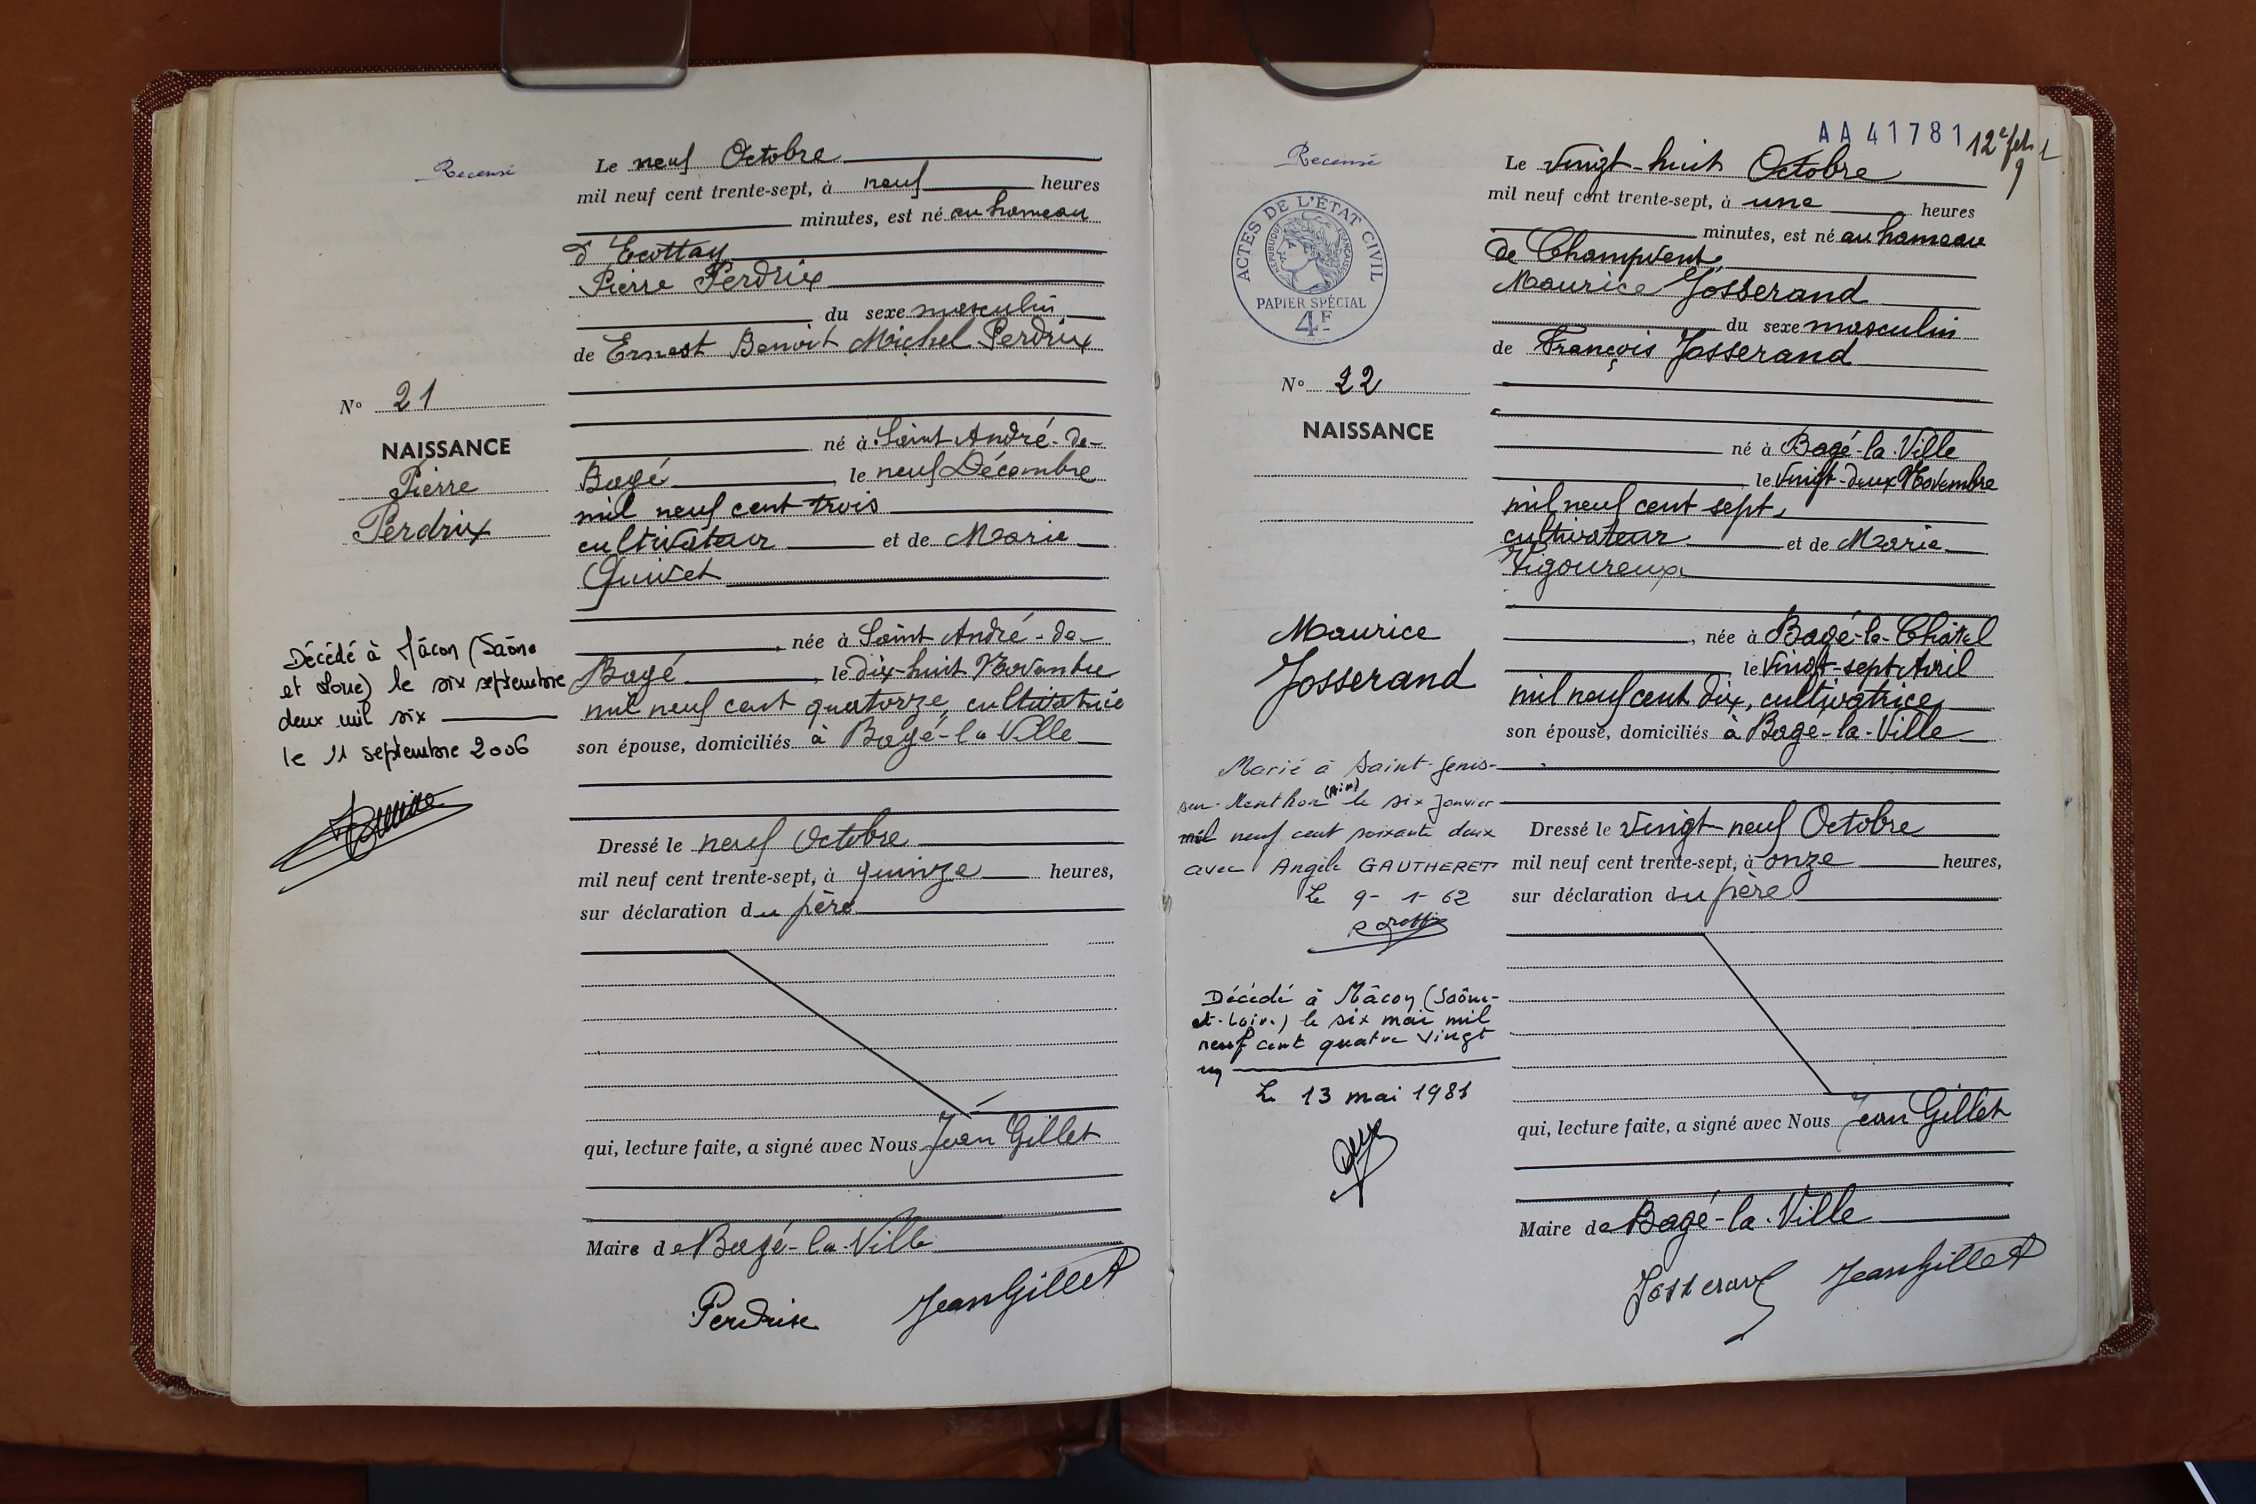 Recensé
Le neuf Octobre
mil neuf cent trente-sept, à neuf heures
minutes, est né au hameau
d'Ecottay
Pierre Perdrix
du sexe masculin
de Ernest Benoit Michel Perdrix
N° 21
NAISSANCE
Pierre
Perdrix
né à Saint André-de-
Bagé, le neuf Décembre
mil neuf cent trois
cultivateur et de Marie
Guivet
, née à Saint André-de-
Bagé, le dix-huit Novembre
mil neuf cent quatorze, cultivatrice
son épouse, domiciliés à Bagé-la-Ville
Décédé à Mâcon (Saône
et Loire) le six septembre
deux mil six
le 11 septembre 2006
Dressé le neuf Octobre
mil neuf cent trente-sept, à quinze heures,
sur déclaration du père
qui, lecture faite, a signé avec Nous Jean Gillet
Maire de Bagé-la-Ville
Perdrix JeanGillet
AA 41781
12e
Recensé
ACTES DE L'ÉTAT CIVIL
RÉPUBLIQUE FRANÇAISE
PAPIER SPÉCIAL
4F
Le Vingt-huit Octobre
mil neuf cent trente-sept, à une heures
minutes, est né au hameau
de Champvent
Maurice Josserand
du sexe masculin
de François Josserand
N° 22
NAISSANCE
Maurice
Josserand
né à Bagé-la-Ville
, le Vingt-deux Novembre
mil neuf cent sept,
cultivateur et de Marie
Vigoureux
, née à Bagé-le-Châtel
le Vingt-sept Avril
mil neuf cent dix, cultivatrice
son épouse, domiciliés à Bagé-la-Ville
Marié à Saint-Genis-
sur-Menthon (Ain) le six Janvier
mil neuf cent soixante deux
avec Angèle GAUTHERET
Le 9-1-62
Décédé à Mâcon (Saône-
et-Loire) le six mai mil
neuf cent quatre vingt
un
Le 13 mai 1981
Dressé le Vingt-neuf Octobre
mil neuf cent trente-sept, à onze heures,
sur déclaration du père
qui, lecture faite, a signé avec Nous Jean Gillet
Maire de Bagé-la-Ville
Josserand JeanGillet